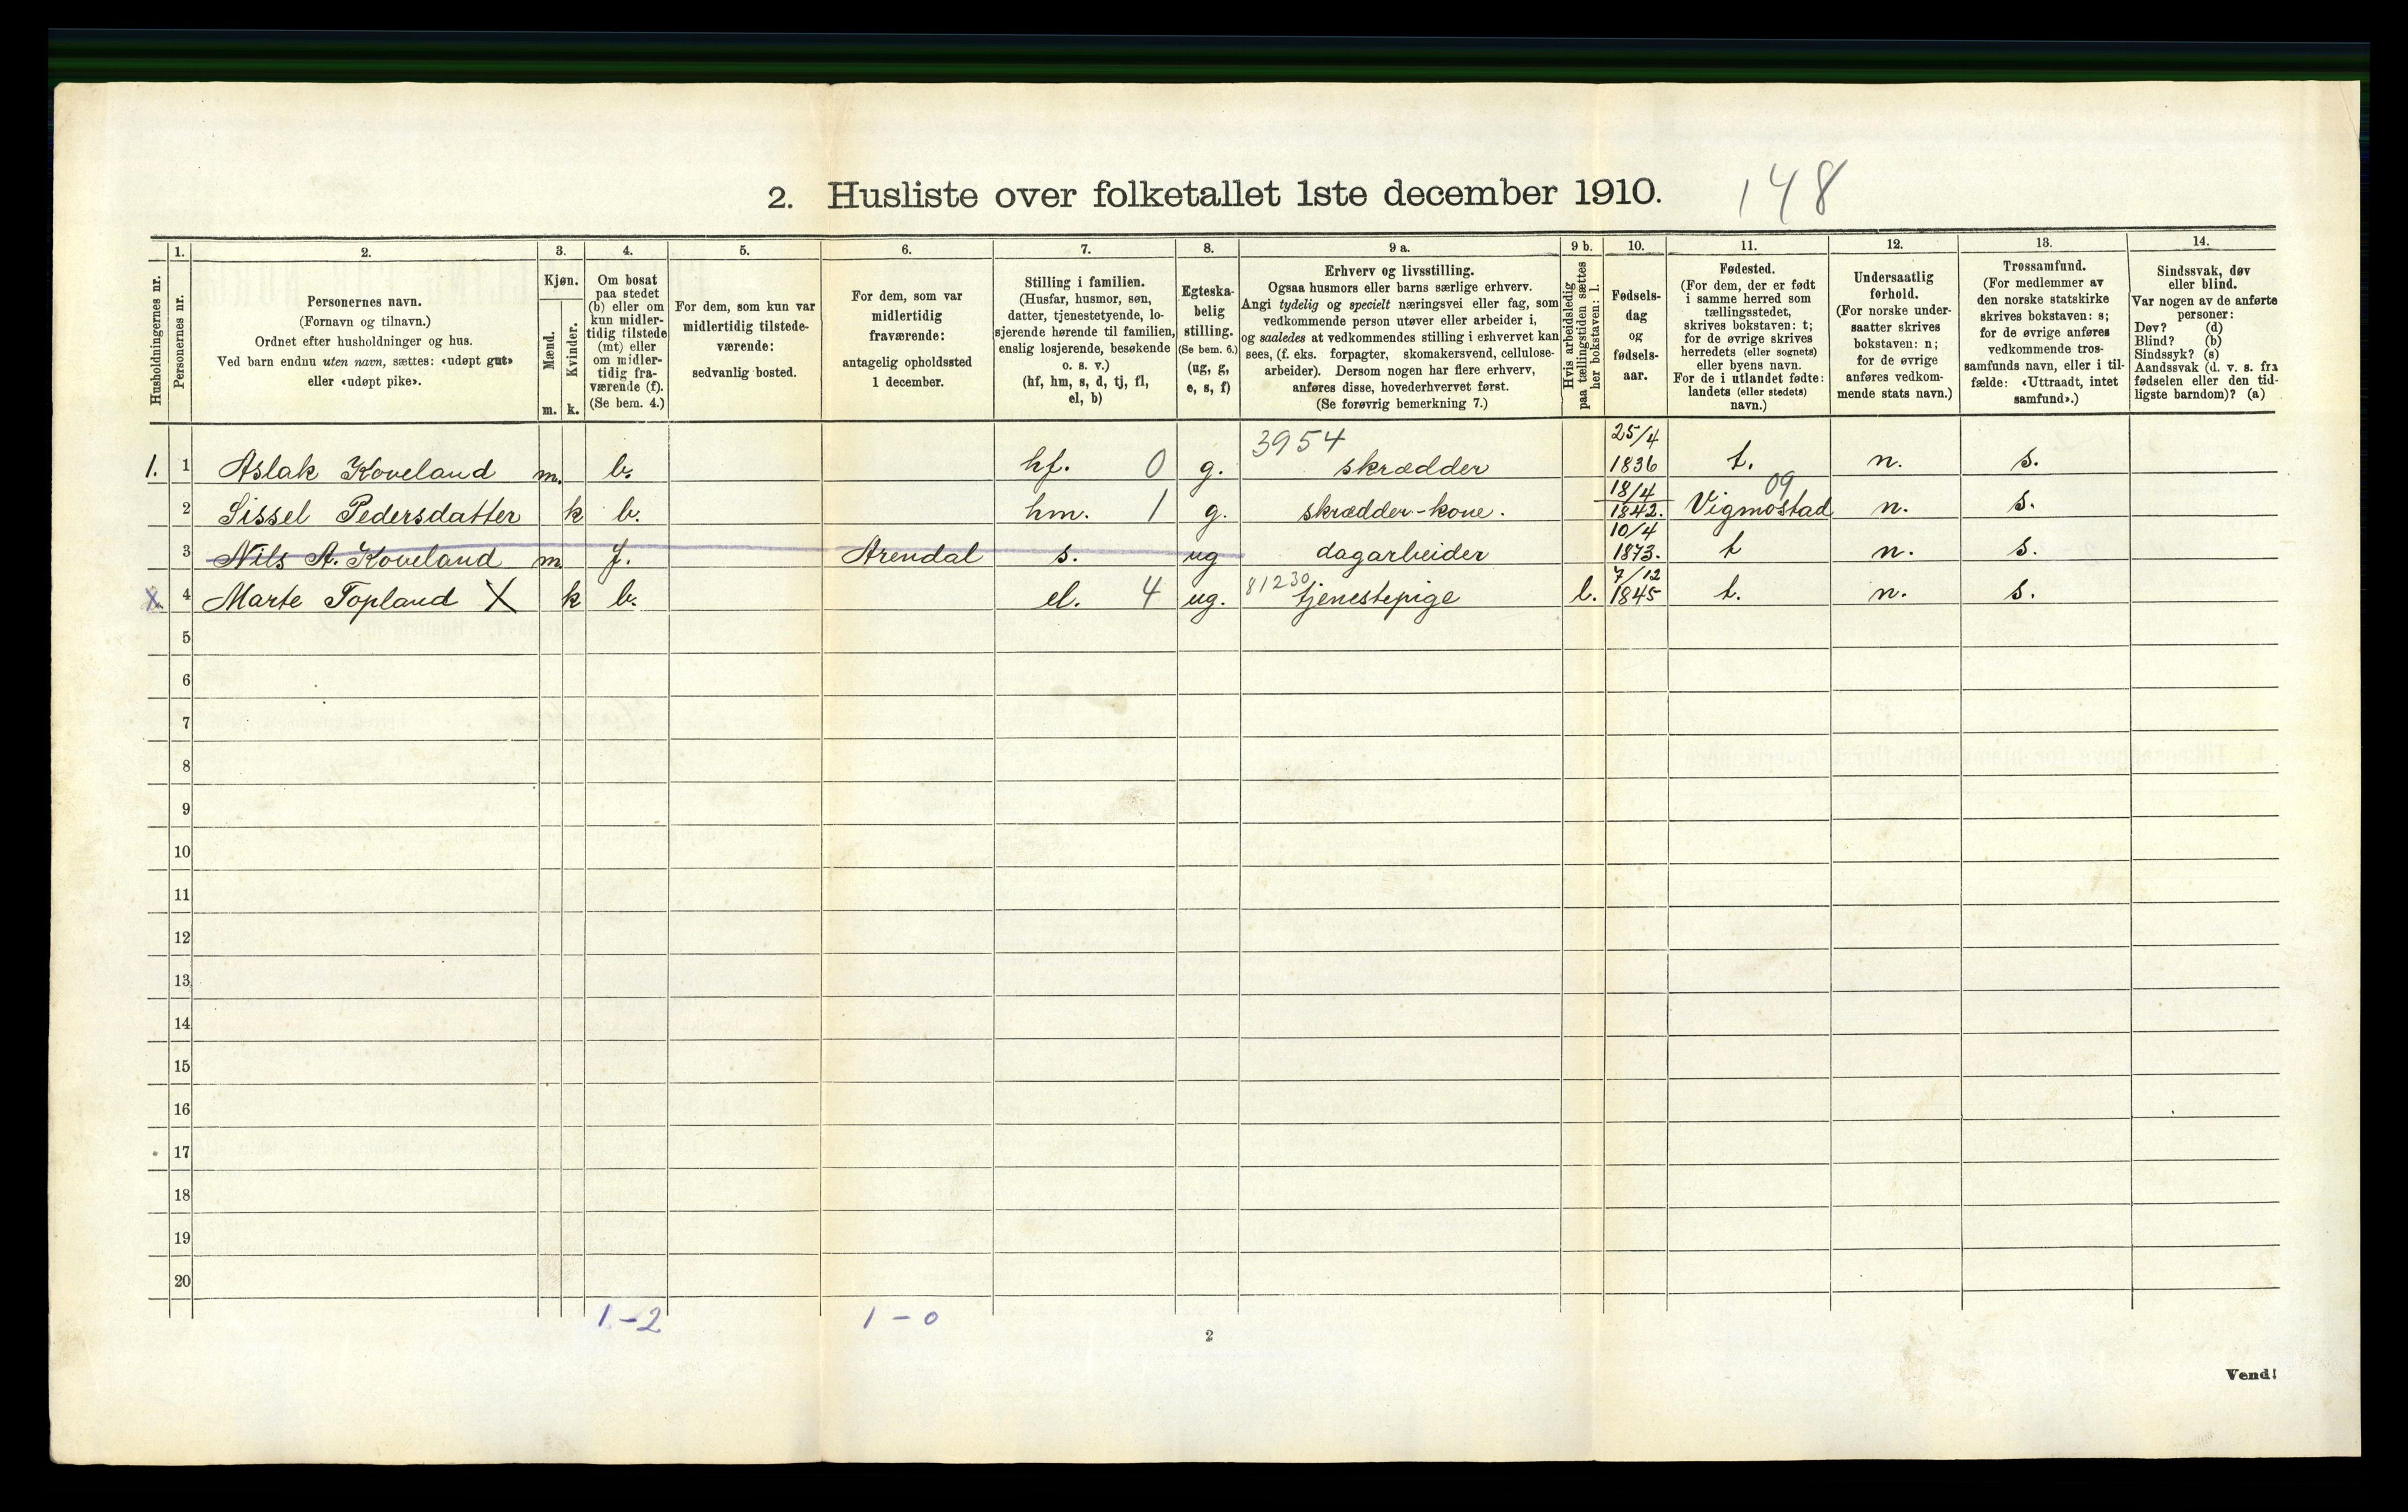 2. Husliste over folketallet 1ste december 1910. 148
Husholdningernes nr.
1. Personernes nr.
2. Personernes navn.
(Fornavn og tilnavn.)
Ordnet efter husholdninger og hus.
Ved barn endnu uten navn, sættes: «udøpt gut»
eller «udøpt pike».
3. Kjøn.
Mænd. m.
Kvinder. k.
4. Om bosat
paa stedet
(b) eller om
kun midler-
tidig tilstede
(mt) eller
om midler-
tidig fra-
værende (f).
(Se bem. 4.)
5. For dem, som kun var
midlertidig tilstede-
værende:
sedvanlig bosted.
6. For dem, som var
midlertidig
fraværende:
antagelig opholdssted
1 december.
7. Stilling i familien.
(Husfar, husmor, søn,
datter, tjenestetyende, lo-
sjerende hørende til familien,
enslig losjerende, besøkende
o. s. v.)
(hf, hm, s, d, tj, fl,
el, b)
8. Egteska-
belig
stilling.
(Se bem. 6.)
(ug, g,
e, s, f)
9 a. Erhverv og livsstilling.
Ogsaa husmors eller barns særlige erhverv.
Angi tydelig og specielt næringsvei eller fag, som
vedkommende person utøver eller arbeider i,
og saaledes at vedkommendes stilling i erhvervet kan
sees, (f. eks. forpagter, skomakersvend, cellulose-
arbeider). Dersom nogen har flere erhverv,
anføres disse, hovederhvervet først.
(Se forøvrig bemerkning 7.)
9 b. Hvis arbeidsledig
paa tællingstiden sættes
her bokstaven: l.
10. Fødsels-
dag
og
fødsels-
aar.
11. Fødested.
(For dem, der er født
i samme herred som
tællingsstedet,
skrives bokstaven: t;
for de øvrige skrives
herredets (eller sognets)
eller byens navn.
For de i utlandet fødte:
landets (eller stedets)
navn.)
12. Undersaatlig
forhold.
(For norske under-
saatter skrives
bokstaven: n;
for de øvrige
anføres vedkom-
mende stats navn.)
13. Trossamfund.
(For medlemmer av
den norske statskirke
skrives bokstaven: s;
for de øvrige anføres
vedkommende tros-
samfunds navn, eller i til-
fælde: «Uttraadt, intet
samfund».)
14. Sindssvak, døv
eller blind.
Var nogen av de anførte
personer:
Døv? (d)
Blind? (b)
Sindssyk? (s)
Aandssvak (d. v. s. fra
fødselen eller den tid-
ligste barndom)? (a)
1. 1 Aslak Koveland m. b. hf. 0 g. 3954 skrædder 25/4 1836 t. n. s.
2 Sissel Pedersdatter k b. hm. 1 g. skrædder-kone. 18/4 1842. Vigmostad 09 n. s.
3 Nils A. Koveland m f. Arendal s. ug dagarbeider 10/4 1873. t n. s.
X. 4 Marte Topland X k b. el. 4 ug. 81230 tjenestepige l. 7/12 1845 t. n. s.
5
6
7
8
9
10
11
12
13
14
15
16
17
18
19
20
1-2 1-0
2
Vend!